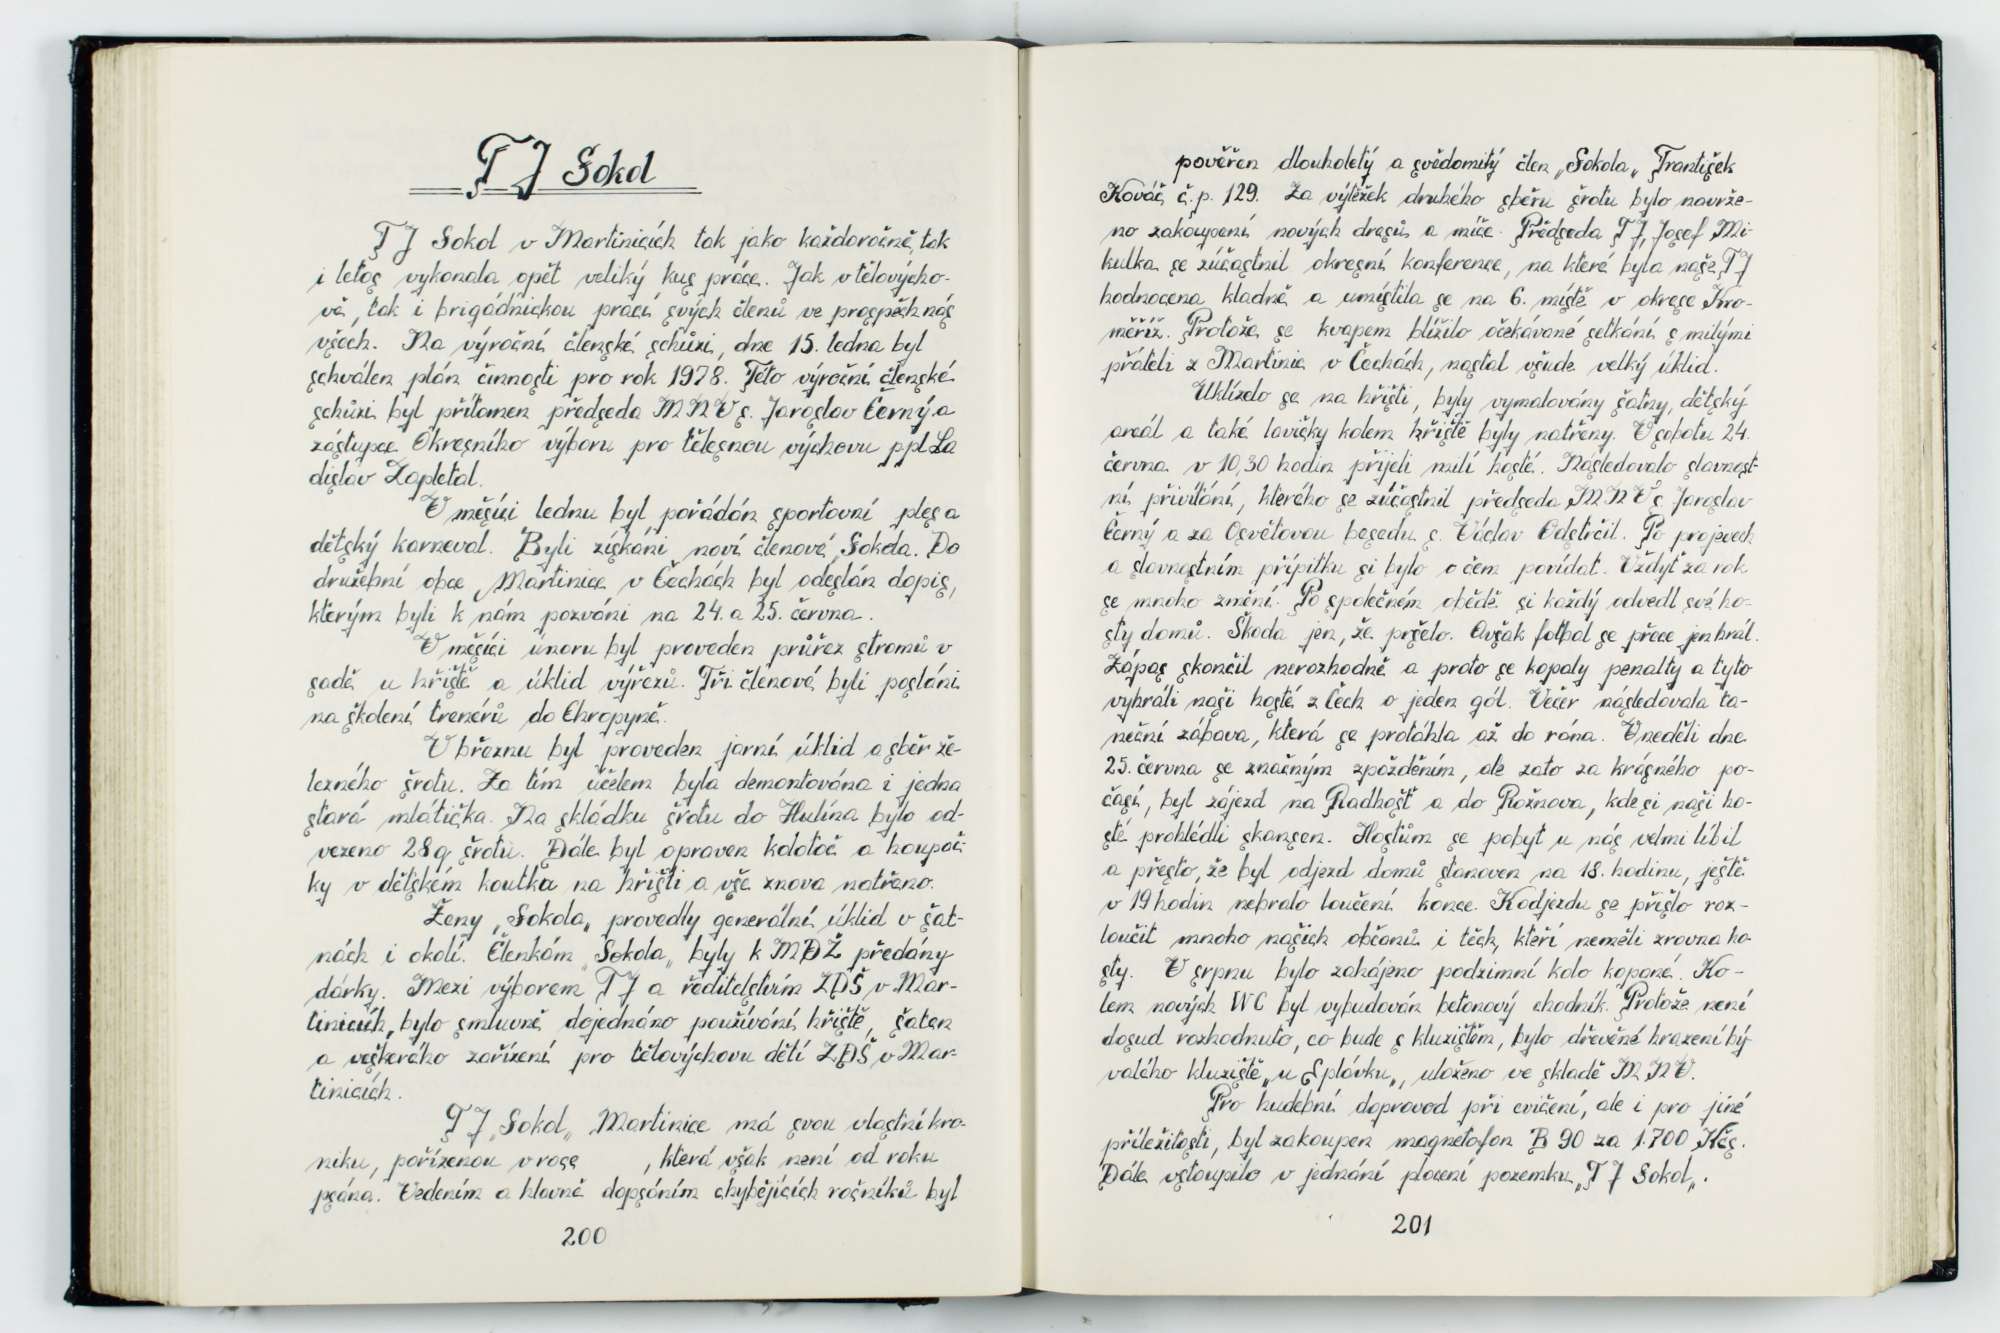 TJ Sokol
TJ Sokol v Martinicích tak jako každoročně, tak
i letos vykonala opět veliký kus práce. Jak v tělovýcho-
vě, tak i brigádnickou prácí svých členů ve prospěch nás
všech. Na výroční členské schůzi, dne 15. ledna byl
schválen plán činnosti pro rok 1978. Této výroční členské
schůzi byl přítomen předseda MNV s. Jaroslav Černý a
zástupce Okresního výboru pro tělesnou výchovu ppl. La
dislav Zapletal.
V měsíci lednu byl pořádán sportovní ples a
dětský karneval. Byli získáni noví členové Sokola. Do
družební obce Martinice v Čechách byl odeslán dopis,
kterým byli k nám pozváni na 24. a 25. června.
V měsíci únoru byl proveden průřez stromů v
sadě u hřiště a úklid výřezů. Tři členové byli posláni
na školení trenérů do Chropyně.
V březnu byl proveden jarní úklid a sběr že-
lezného šrotu. Za tím účelem byla demontována i jedna
stará mlátička. Na skládku šrotu do Hulína bylo od-
vezeno 28 q šrotu. Dále byl opraven kolotoč a houpač-
ky v dětském koutku na hřišti a vše znova natřeno.
Ženy „Sokola„ provedly generální úklid v šat-
nách i okolí. Členkám „Sokola„ byly k MDŽ předány
dárky. Mezi výborem TJ a ředitelstvím ZDŠ v Mar-
tinicích, bylo smluvně dojednáno používání hřiště, šaten
a veškerého zařízení pro tělovýchovu dětí ZDŠ v Mar-
tinicích.
TJ „Sokol„ Martinice má svou vlastní kro-
niku, pořízenou v roce , která však není od roku
psána. Vedením a hlavně dopsáním chybějících ročníků byl
200
pověřen dlouholetý a svědomitý člen „Sokola„ František
Kováč č.p. 129. Za výtěžek druhého sběru šrotu bylo navrže-
no zakoupení nových dresů a míče. Předseda TJ, Josef Mi-
kulka se zúčastnil okresní konference, na které byla naše TJ
hodnocena kladně a umístila se na 6. místě v okrese Kro-
měříž. Protože se kvapem blížilo očekávané setkání s milými
přáteli z Martinic v Čechách, nastal všude velký úklid.
Uklízelo se na hřišti, byly vymalovány šatny, dětský
areál a také lavičky kolem hřiště byly natřeny. V sobotu 24.
června v 10,30 hodin přijeli milí hosté. Následovalo slavnost-
ní přivítání, kterého se zúčastnil předseda MNV s. Jaroslav
Černý a za Osvětovou besedu s. Václav Odstrčil. Po projevech
a slavnostním přípitku si bylo o čem povídat. Vždyť za rok
se mnoho změní. Po společném obědě si každý odvedl své ho-
sty domů. Škoda jen, že pršelo. Avšak fotbal se přece jen hrál.
Zápas skončil nerozhodně a proto se kopaly penalty a tyto
vyhráli naši hosté z Čech o jeden gól. Večer následovala ta-
neční zábava, která se protáhla až do rána. V neděli dne
25. června se značným zpožděním, ale zato za krásného po-
časí, byl zájezd na Radhošť a do Rožnova, kde si naši ho-
sté prohlédli skansen. Hostům se pobyt u nás velmi líbil
a přesto, že byl odjezd domů stanoven na 18. hodinu, ještě
v 19 hodin nebralo loučení konce. K odjezdu se přišlo roz-
loučit mnoho našich občanů i těch, kteří neměli zrovna ho-
sty. V srpnu bylo zahájeno podzimní kolo kopané. Ko-
lem nových WC byl vybudován betonový chodník. Protože není
dosud rozhodnuto, co bude s kluzištěm, bylo dřevěné hrazení bý
valého kluziště „u Splávku„, uloženo ve skladě MNV.
Pro hudební doprovod při cvičení, ale i pro jiné
příležitosti, byl zakoupen magnetofon B 90 za 1.700 Kčs.
Dále vstoupilo v jednání placení pozemku „TJ Sokol„.
201